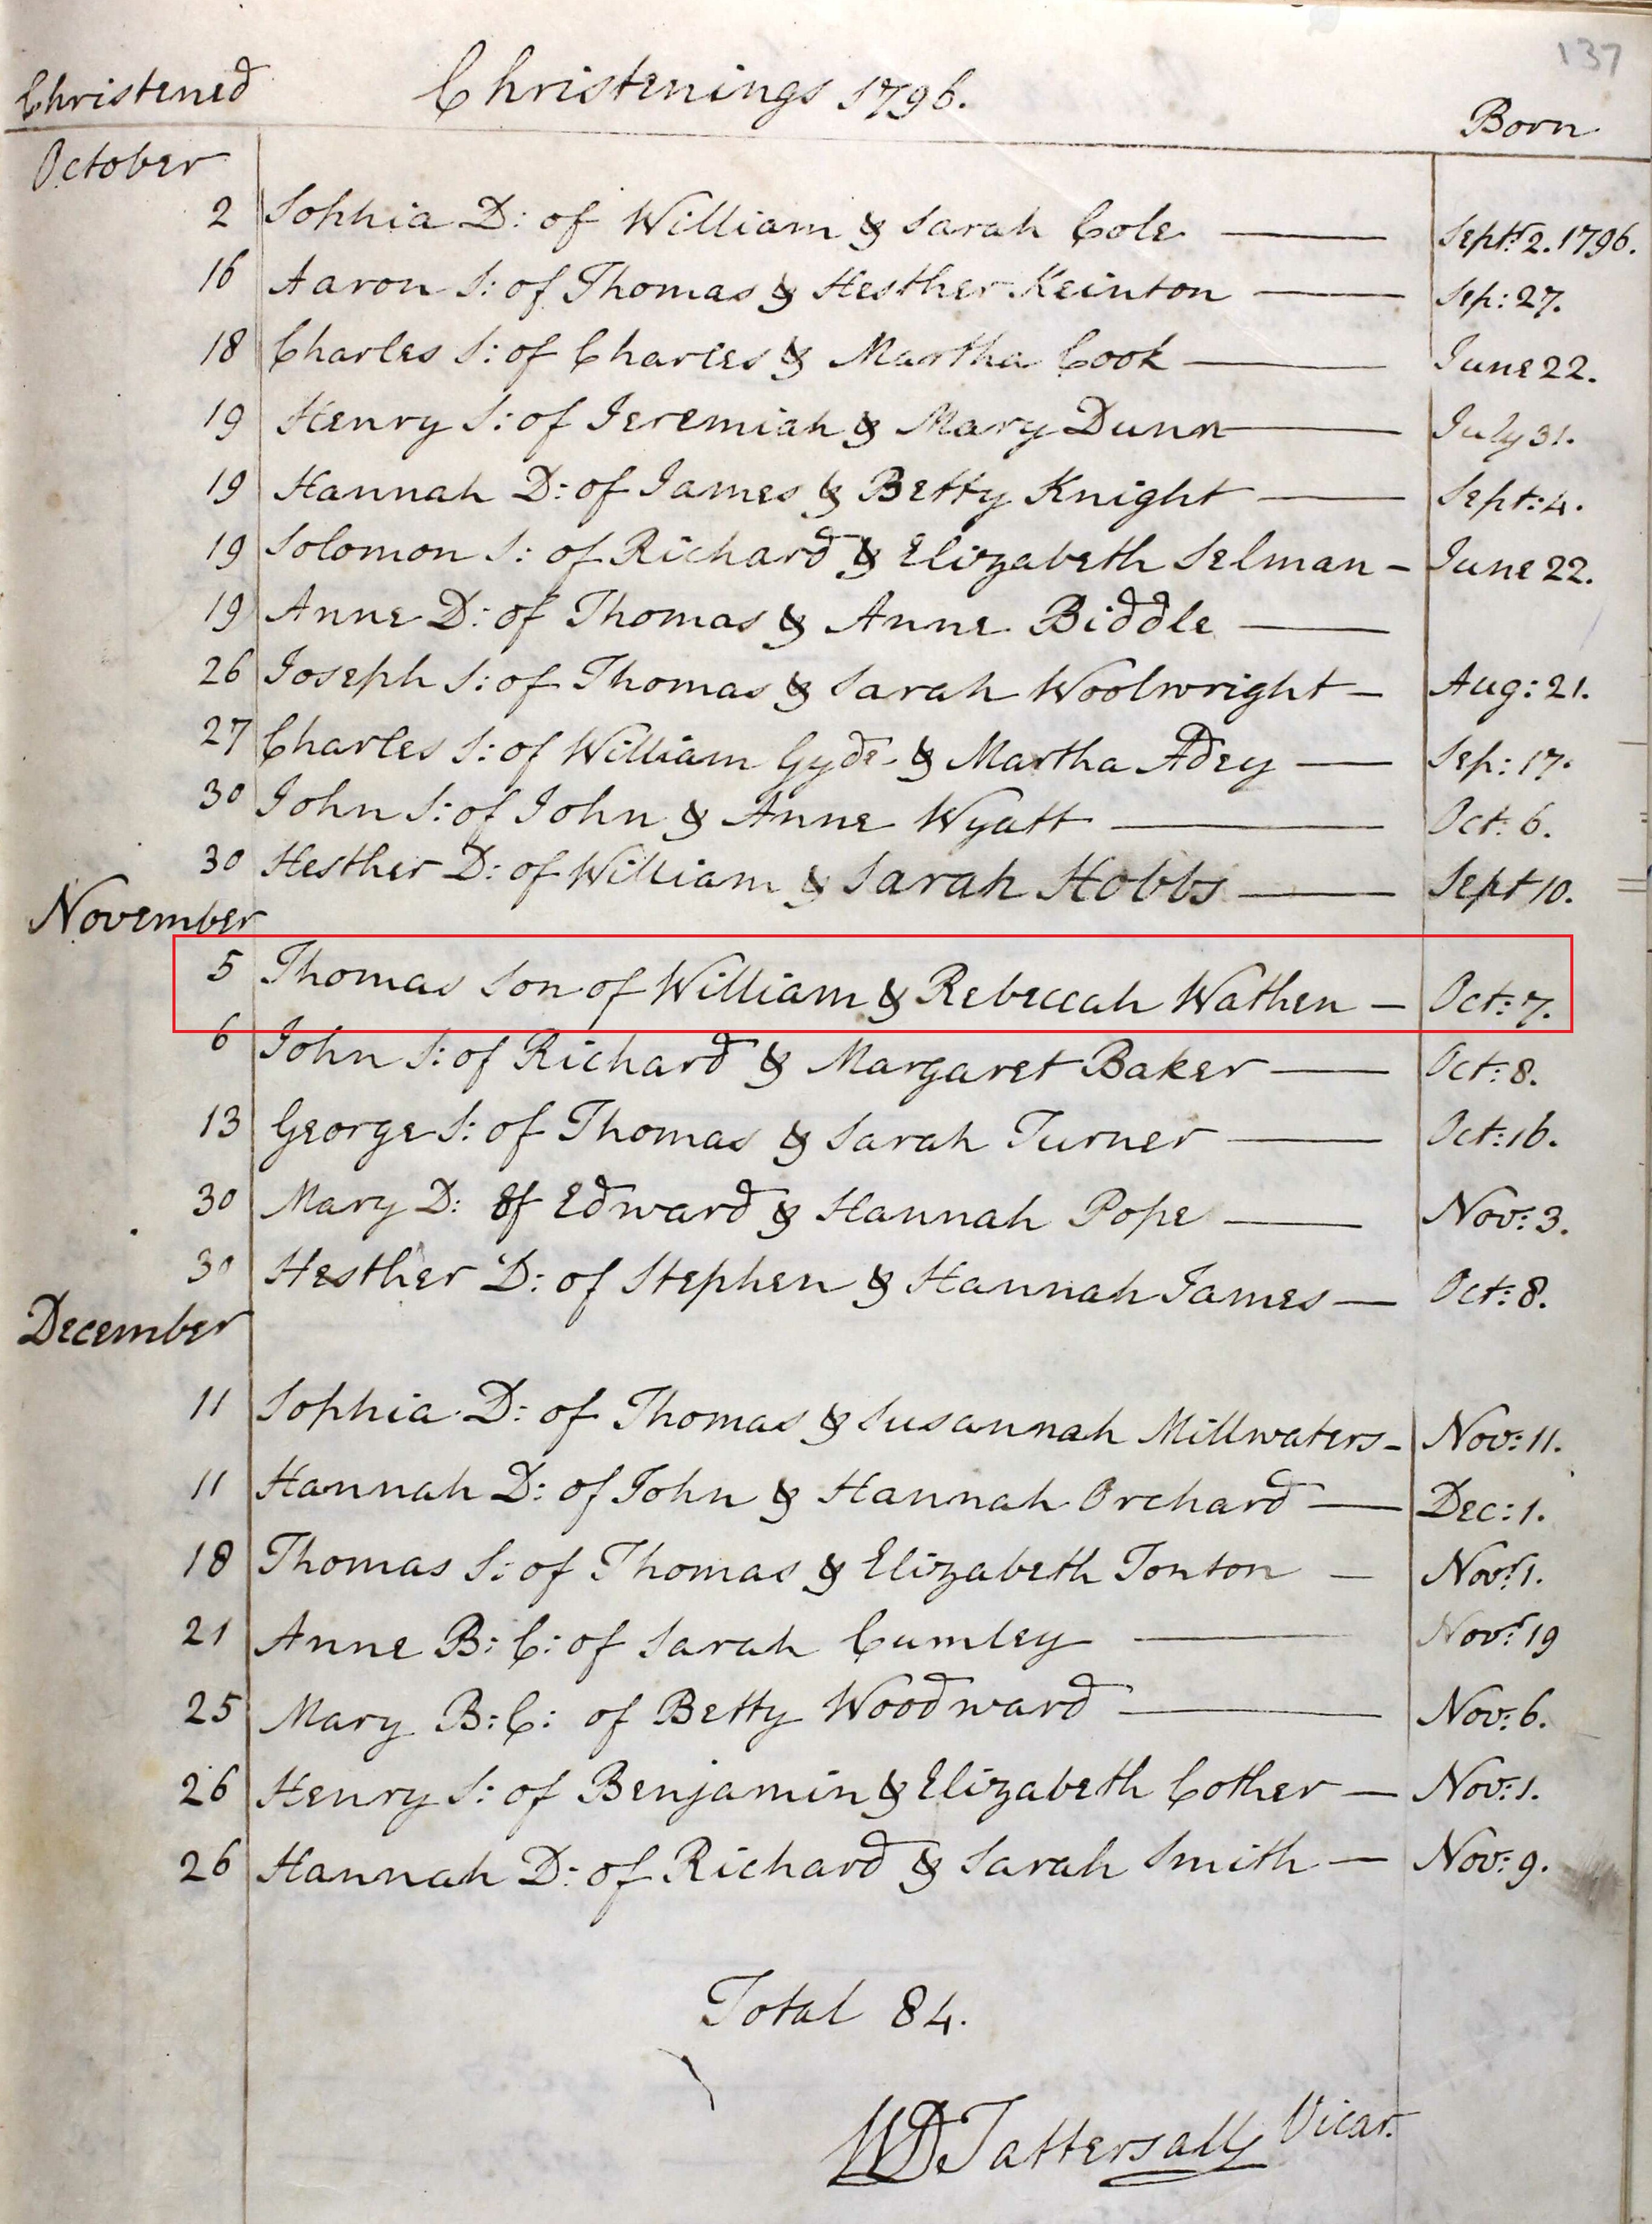 137
Christened Christenings 1796. Born
October
2 Sophia D: of William & Sarah Cole — Sept: 2. 1796.
16 Aaron S: of Thomas & Hesther Keinton — Sep: 27.
18 Charles S: of Charles & Martha Cook — June 22.
19 Henry S: of Jeremiah & Mary Dunn — July 31.
19 Hannah D: of James & Betty Knight — Sept: 4.
19 Solomon S: of Richard & Elizabeth Selman — June 22.
19 Anne D: of Thomas & Anne Biddle —
26 Joseph S: of Thomas & Sarah Woolwright — Aug: 21.
27 Charles S: of William Gyde & Martha Adey — Sep: 17.
30 John S: of John & Anne Wyatt — Oct: 6.
30 Hesther D: of William & Sarah Hobbs — Sept 10.
November
5 Thomas Son of William & Rebeccah Wathen — Oct: 7.
6 John S: of Richard & Margaret Baker — Oct: 8.
13 George S: of Thomas & Sarah Turner — Oct: 16.
30 Mary D: of Edward & Hannah Pope — Nov: 3.
30 Hesther D: of Stephen & Hannah James — Oct: 8.
December
11 Sophia D: of Thomas & Susannah Millwaters — Nov: 11.
11 Hannah D: of John & Hannah Orchard — Dec: 1.
18 Thomas S: of Thomas & Elizabeth Tonton — Novr: 1.
21 Anne B: C: of Sarah Cumley — Novr: 19
25 Mary B: C: of Betty Woodward — Nov: 6.
26 Henry S: of Benjamin & Elizabeth Cother — Nov: 1.
26 Hannah D: of Richard & Sarah Smith — Nov: 9.
Total 84.
WD Tattersall Vicar.